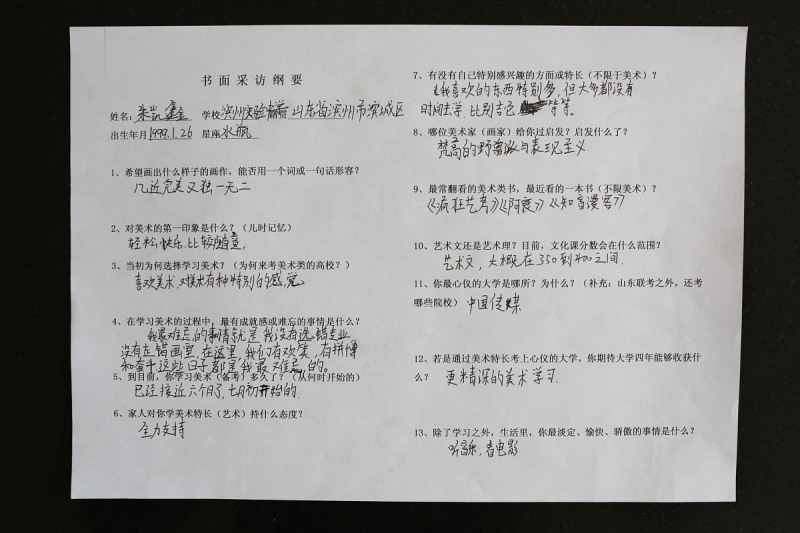 书面采访纲要
姓名：朱凯 学校 滨州实验 山东省滨州市滨城区
出生年月 1999.1.26 星座 水瓶
1、希望画出什么样子的画作，能否用一个词或一句话形容？
几近完美又独一无二
2、对美术的第一印象是什么？（儿时记忆）
轻松快乐，比较随意，
3、当初为何选择学习美术？（为何来考美术类的高校？）
喜欢美术，对美术有种特别的感觉
4、在学习美术的过程中，最有成就感或难忘的事情是什么？
我最难忘的事情就是我没有选错专业
没有走错画室，在这里，我们有欢笑，有拼博
和奋斗这些日子都是我最难忘的。
5、到目前，你学习美术（备考）多久了？（从何时开始的）
已经接近六个月了，七月初开始的
6、家人对你学美术特长（艺术）持什么态度？
全力支持
7、有没有自己特别感兴趣的方面或特长（不限于美术）？
我喜欢的东西特别多，但大多都没有
时间去学，比别吉它 等等。
8、哪位美术家（画家）给你过启发？启发什么了？
梵高的野兽派与表现主义
9、最常翻看的美术类书，最近看的一本书（不限美术）？
《疯狂艺考》《阿衰》《知音漫客》
10、艺术文还是艺术理？目前，文化课分数会在什么范围？
艺术文，大概在350到400之间
11、你最心仪的大学是哪所？为什么？（补充：山东联考之外，还考
哪些院校） 中国传媒
12、若是通过美术特长考上心仪的大学，你期待大学四年能够收获什
么？ 更精深的美术学习
13、除了学习之外，生活里，你最淡定、愉快、骄傲的事情是什么？
听音乐，看电影